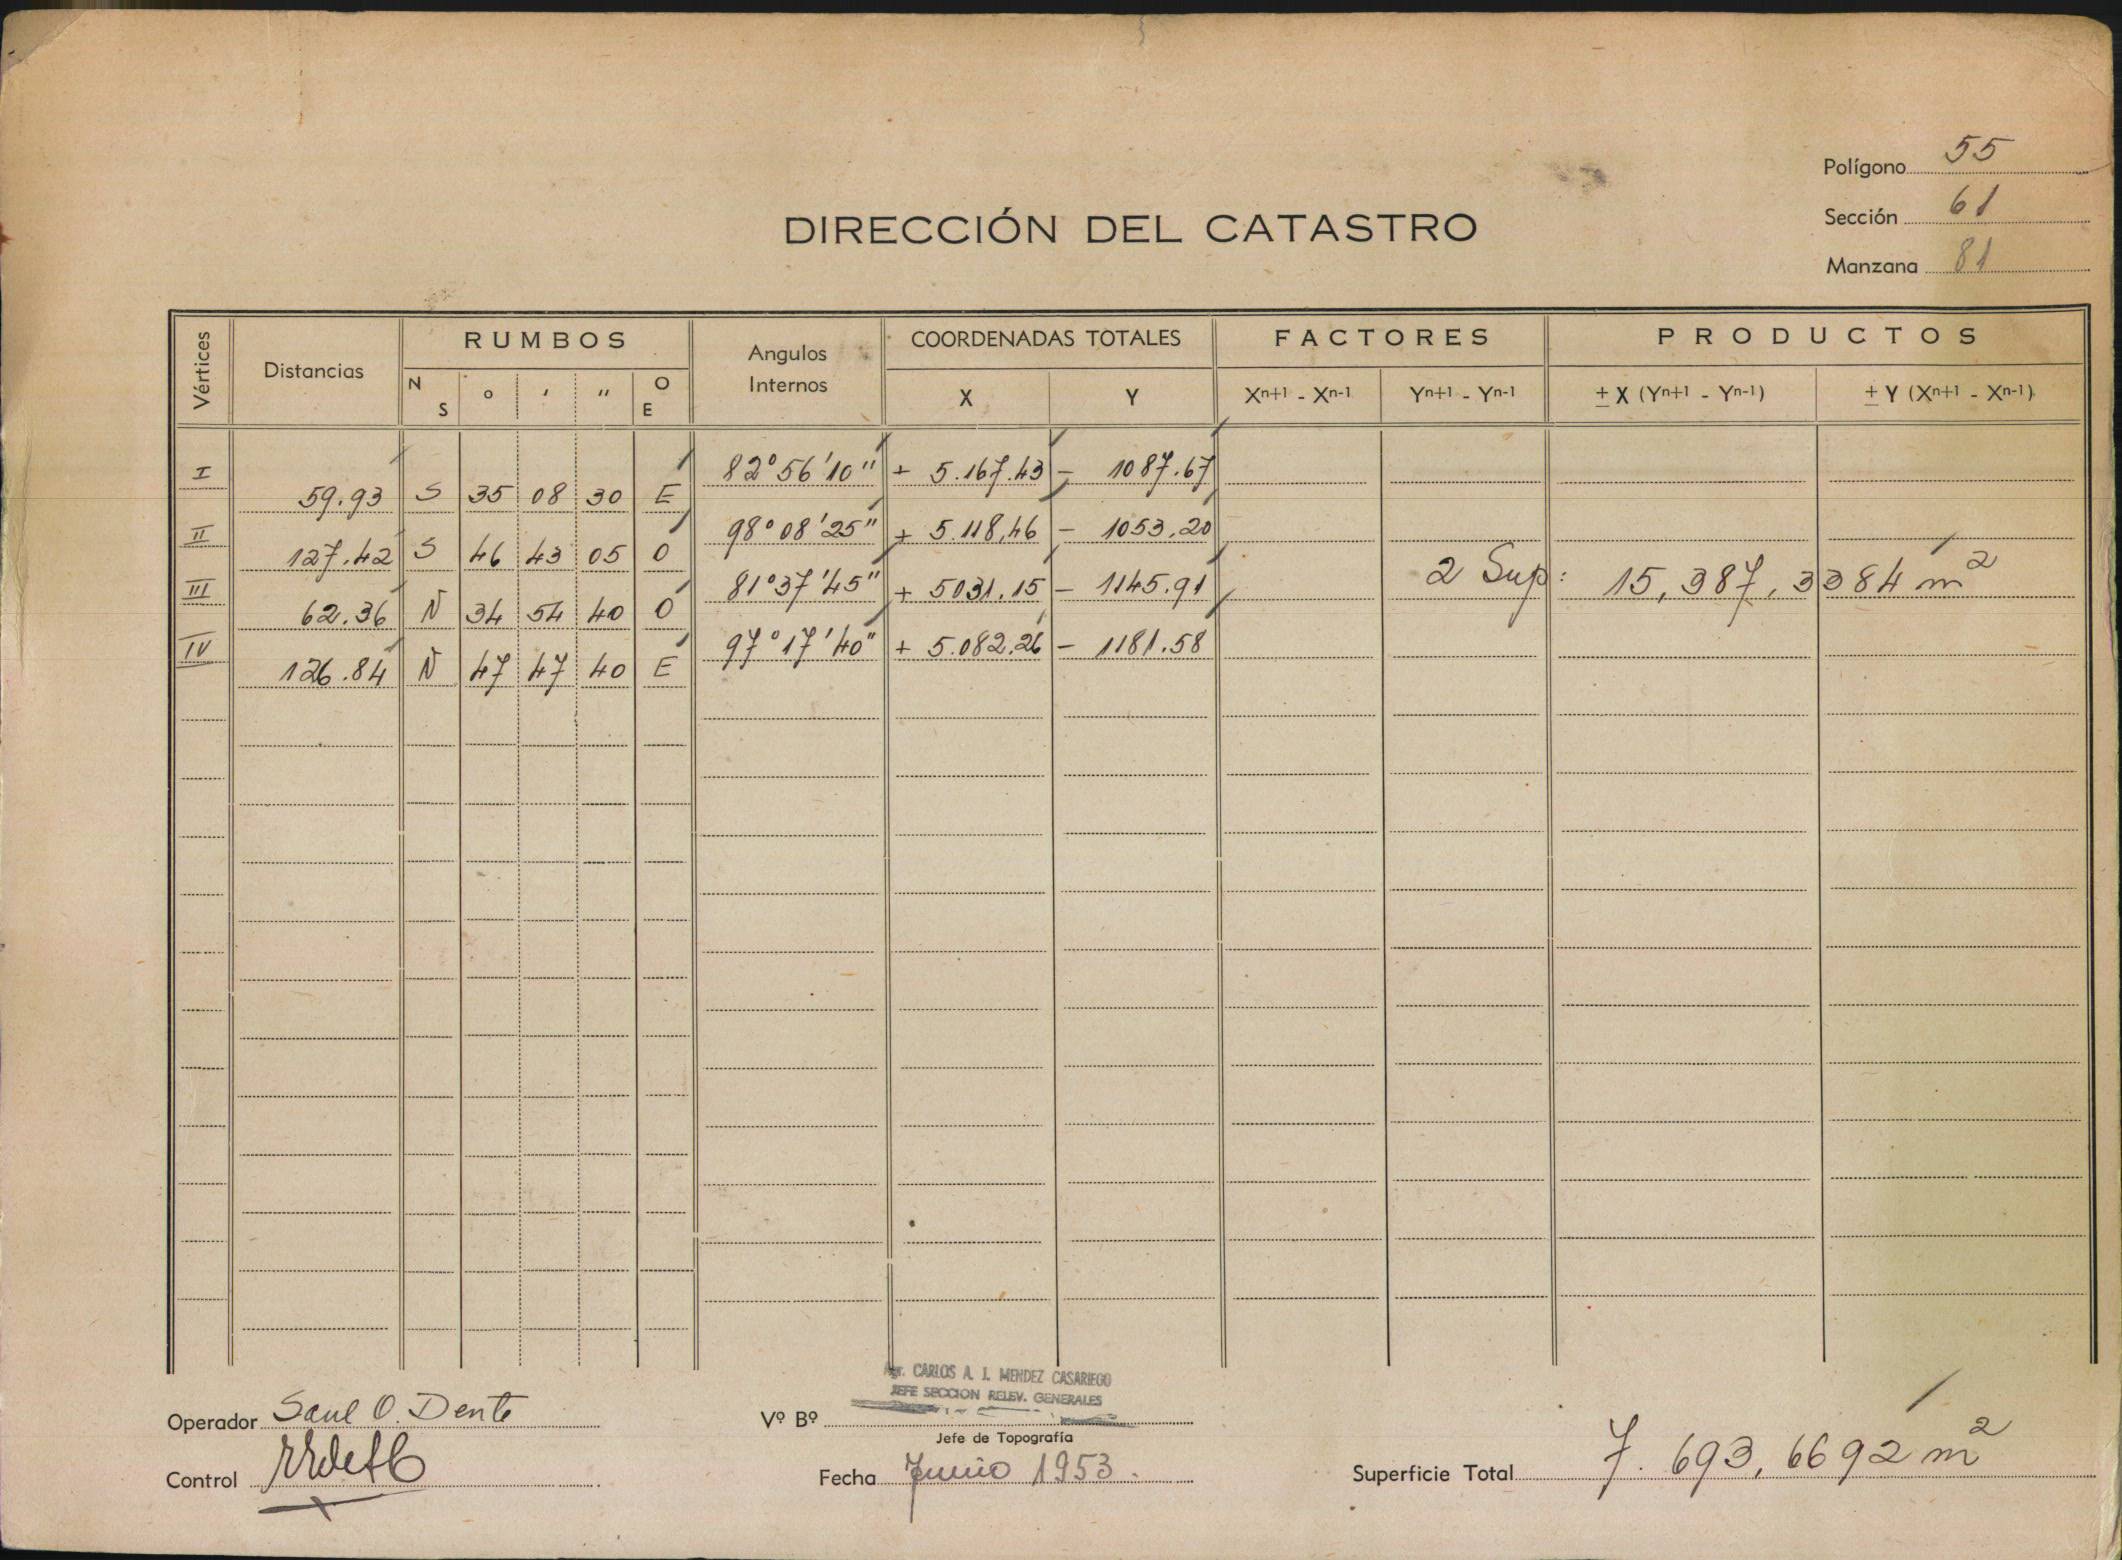 Polígono 55
Sección 61
Manzana 81
DIRECCIÓN DEL CATASTRO
Vértices Distancias RUMBOS Angulos Internos COORDENADAS TOTALES FACTORES PRODUCTOS
N S ° ' " O E X Y Xn+1 - Xn-1 Yn+1 - Yn-1 ± X (Yn+1 - Yn-1) ± Y (Xn+1 - Xn-1)
I 82°56'10" + 5.167.43 - 1087.67
59.93 S 35 08 30 E
II 98°08'25" + 5.118,46 - 1053.20
127.42 S 46 43 05 O
III 81°37'45" + 5031.15 - 1145.91 2 Sup: 15,387,3384 m²
62.36 N 34 54 40 O
IV 97°17'40" + 5.082.26 - 1181.58
126.84 N 47 47 40 E
Agr. CARLOS A. J. MENDEZ CASARIEGO
JEFE SECCION RELEV. GENERALES
Operador Saul O. Dente Vº Bº
Jefe de Topografía
Control Fecha Junio 1953. Superficie Total 7.693,6692 m²